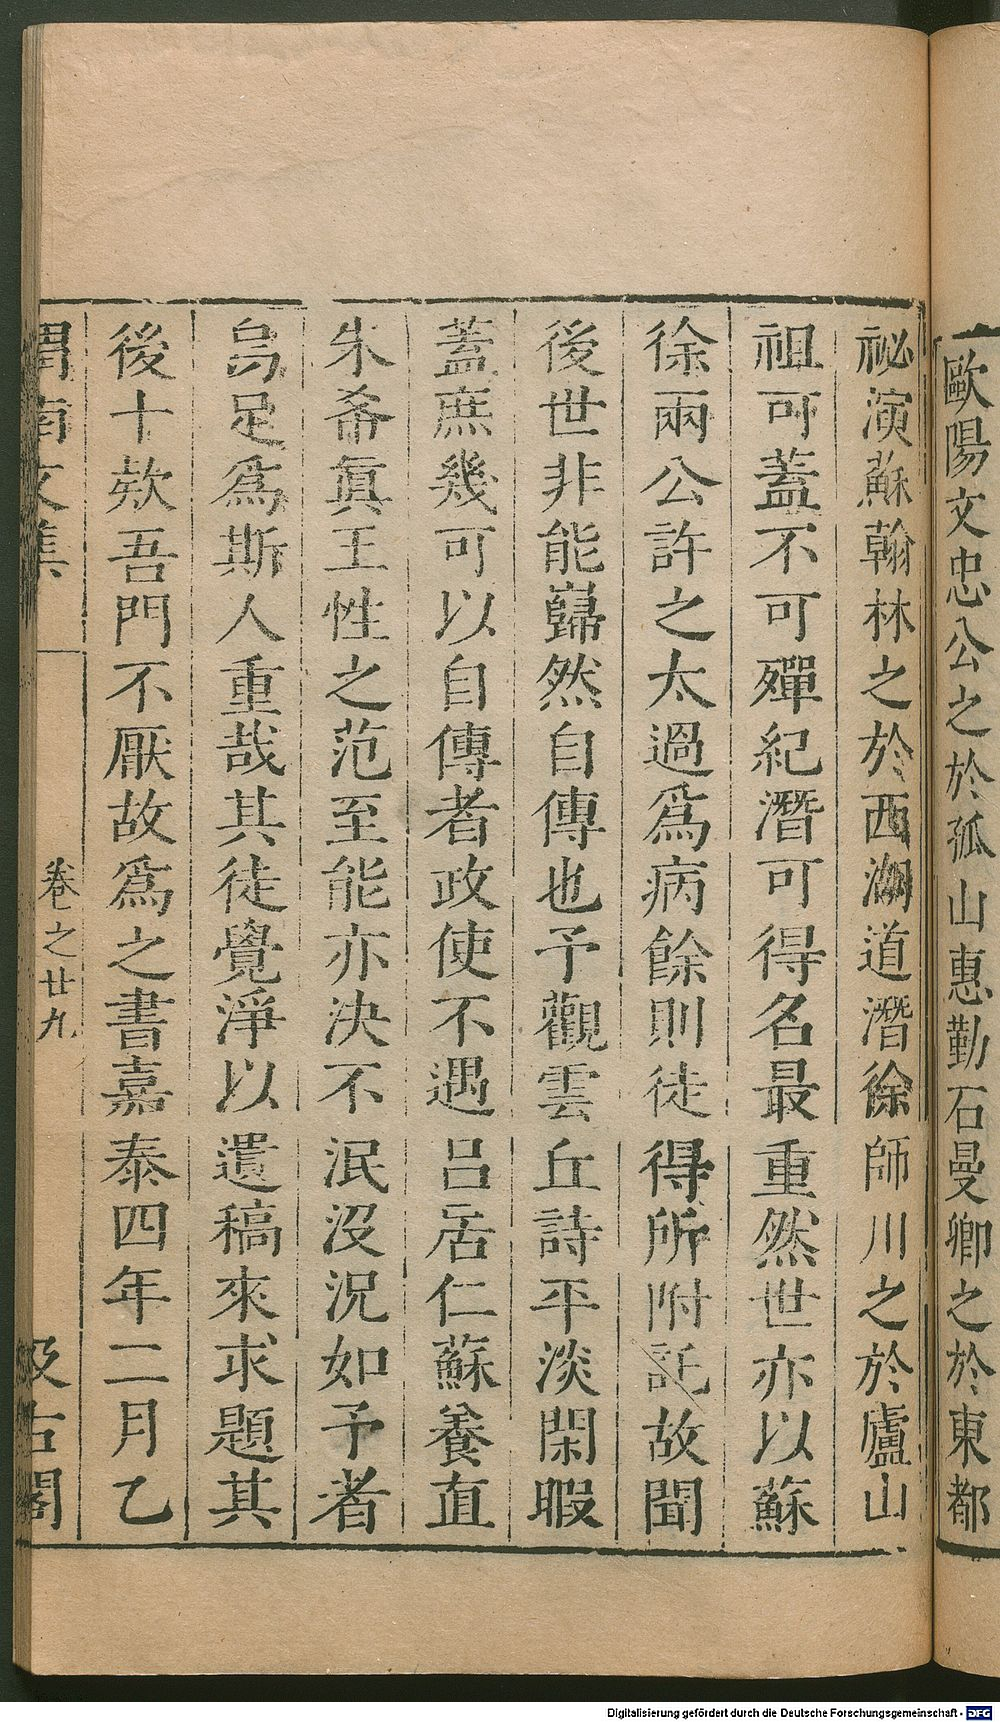 歐陽文忠公之於孤山惠勤石曼卿之於東都
祕演蘇翰林之於西湖道潛徐師川之於廬山
祖可蓋不可殫紀潛可得名最重然世亦以蘇
徐兩公許之太過爲病餘則徒得所附託故聞
後世非能巋然自傳也予觀雲丘詩平淡閑暇
蓋庶幾可以自傳者政使不遇呂居仁蘇養直
朱希眞王性之范至能亦決不泯沒況如予者
烏足爲斯人重哉其徒覺淨以遺稿來求題其
後十欵吾門不厭故爲之書嘉泰四年二月乙
渭南文集
卷之廿九
汲古閣
Digitalisierung gefördert durch die Deutsche Forschungsgemeinschaft - DFG